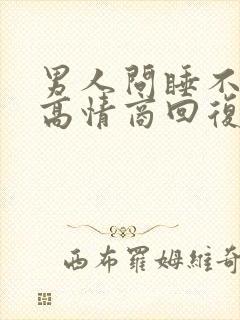 男人問睡不
高情商回復
西布羅姆維奇